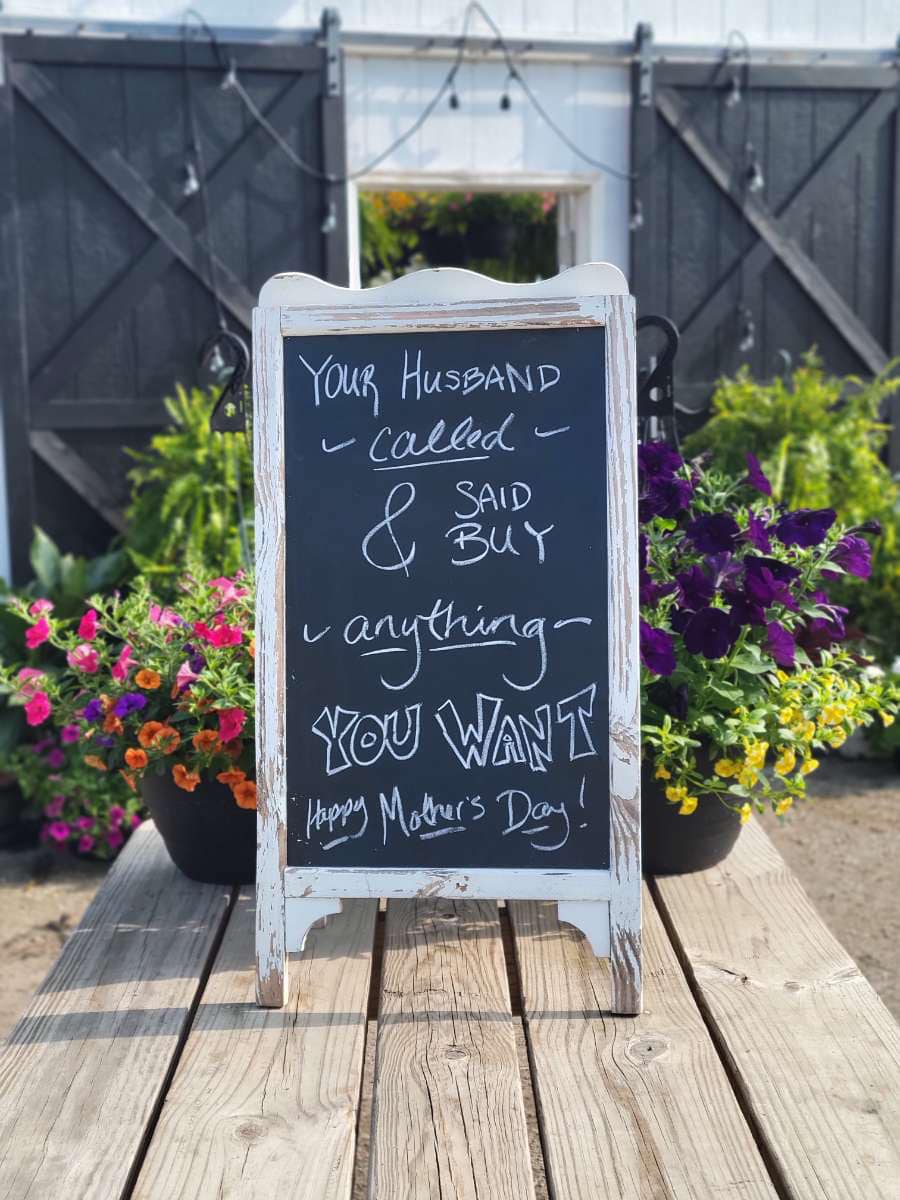 Your Husband
- called -
& SAID
BUY
- anything -
YOU WANT
Happy Mother's Day!